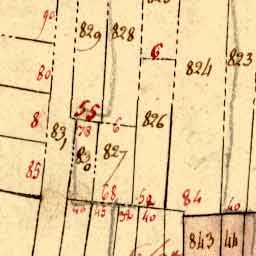 90
829 828
6
80
824 823
55
8
831
78 6
826
830 827
85
68 52 84
40 45 32 40 40
843 44